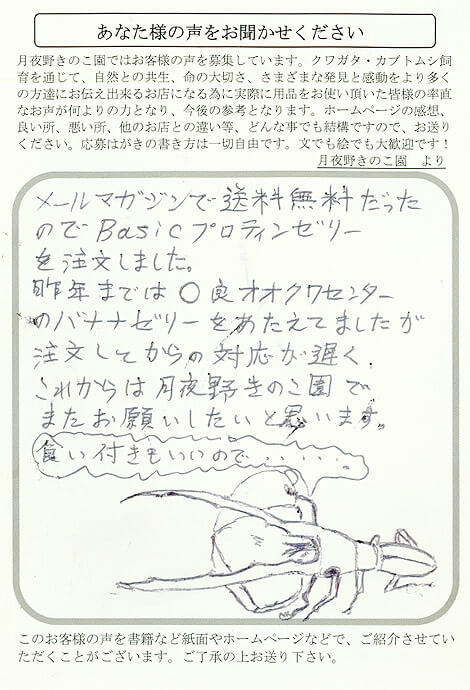 あなた様の声をお聞かせください
月夜野きのこ園ではお客様の声を募集しています。クワガタ・カブトムシ飼
育を通じて、自然との共生、命の大切さ、さまざまな発見と感動をより多く
の方達にお伝え出来るお店になる為に実際に用品をお使い頂いた皆様の率直
なお声が何よりの力となり、今後の参考となります。ホームページの感想、
良い所、悪い所、他のお店との違い等、どんな事でも結構ですので、お送り
ください。応募はがきの書き方は一切自由です。文でも絵でも大歓迎です！
月夜野きのこ園　より
メールマガジンで送料無料だった
のでBasicプロティンゼリー
を注文しました。
昨年までは○良オオクワセンター
のバナナゼリーをあたえてましたが
注文してからの対応が遅く、
これからは月夜野きのこ園で
またお願いしたいと思います。
食い付きもいいので・・・・・。
このお客様の声を書籍など紙面やホームページなどで、ご紹介させてい
ただくことがございます。ご了承の上お送り下さい。